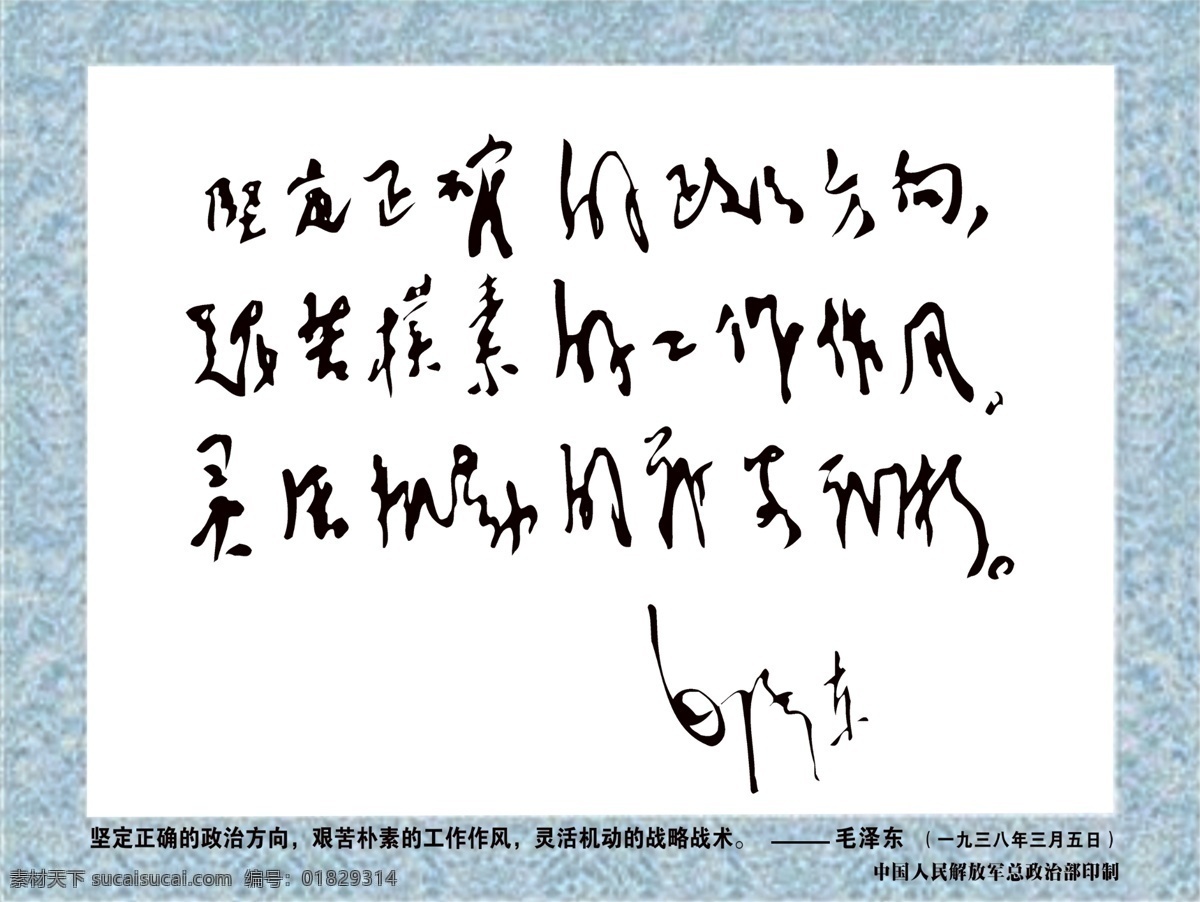 坚定正确的政治方向，
艰苦朴素的工作作风。
灵活机动的战略战术。
毛泽东
坚定正确的政治方向，艰苦朴素的工作作风，灵活机动的战略战术。 ——— 毛泽东 （一九三八年三月五日）
中国人民解放军总政治部印制
素材天下 sucaisucai.com 编号：01829314